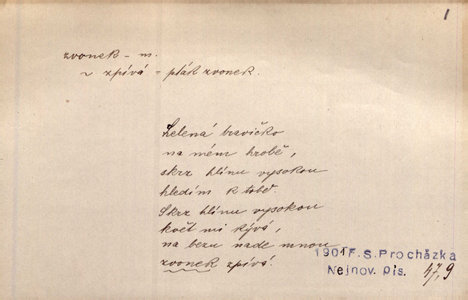 1
zvonek – m.
~ zpívá = pták zvonek.
Zelená travičko
na mém hrobě,
skrz hlínu vysokou
hledím k tobě.
Skrz hlínu vysokou
květ mi kývá,
na bezu nade mnou
zvonek zpívá.
1901 F. S. Procházka
Nejnov. pís. 47,9